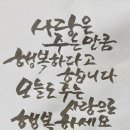 사랑은
주는 만큼
행복하다고
합니다
오늘도 주는
사랑으로
행복하세요